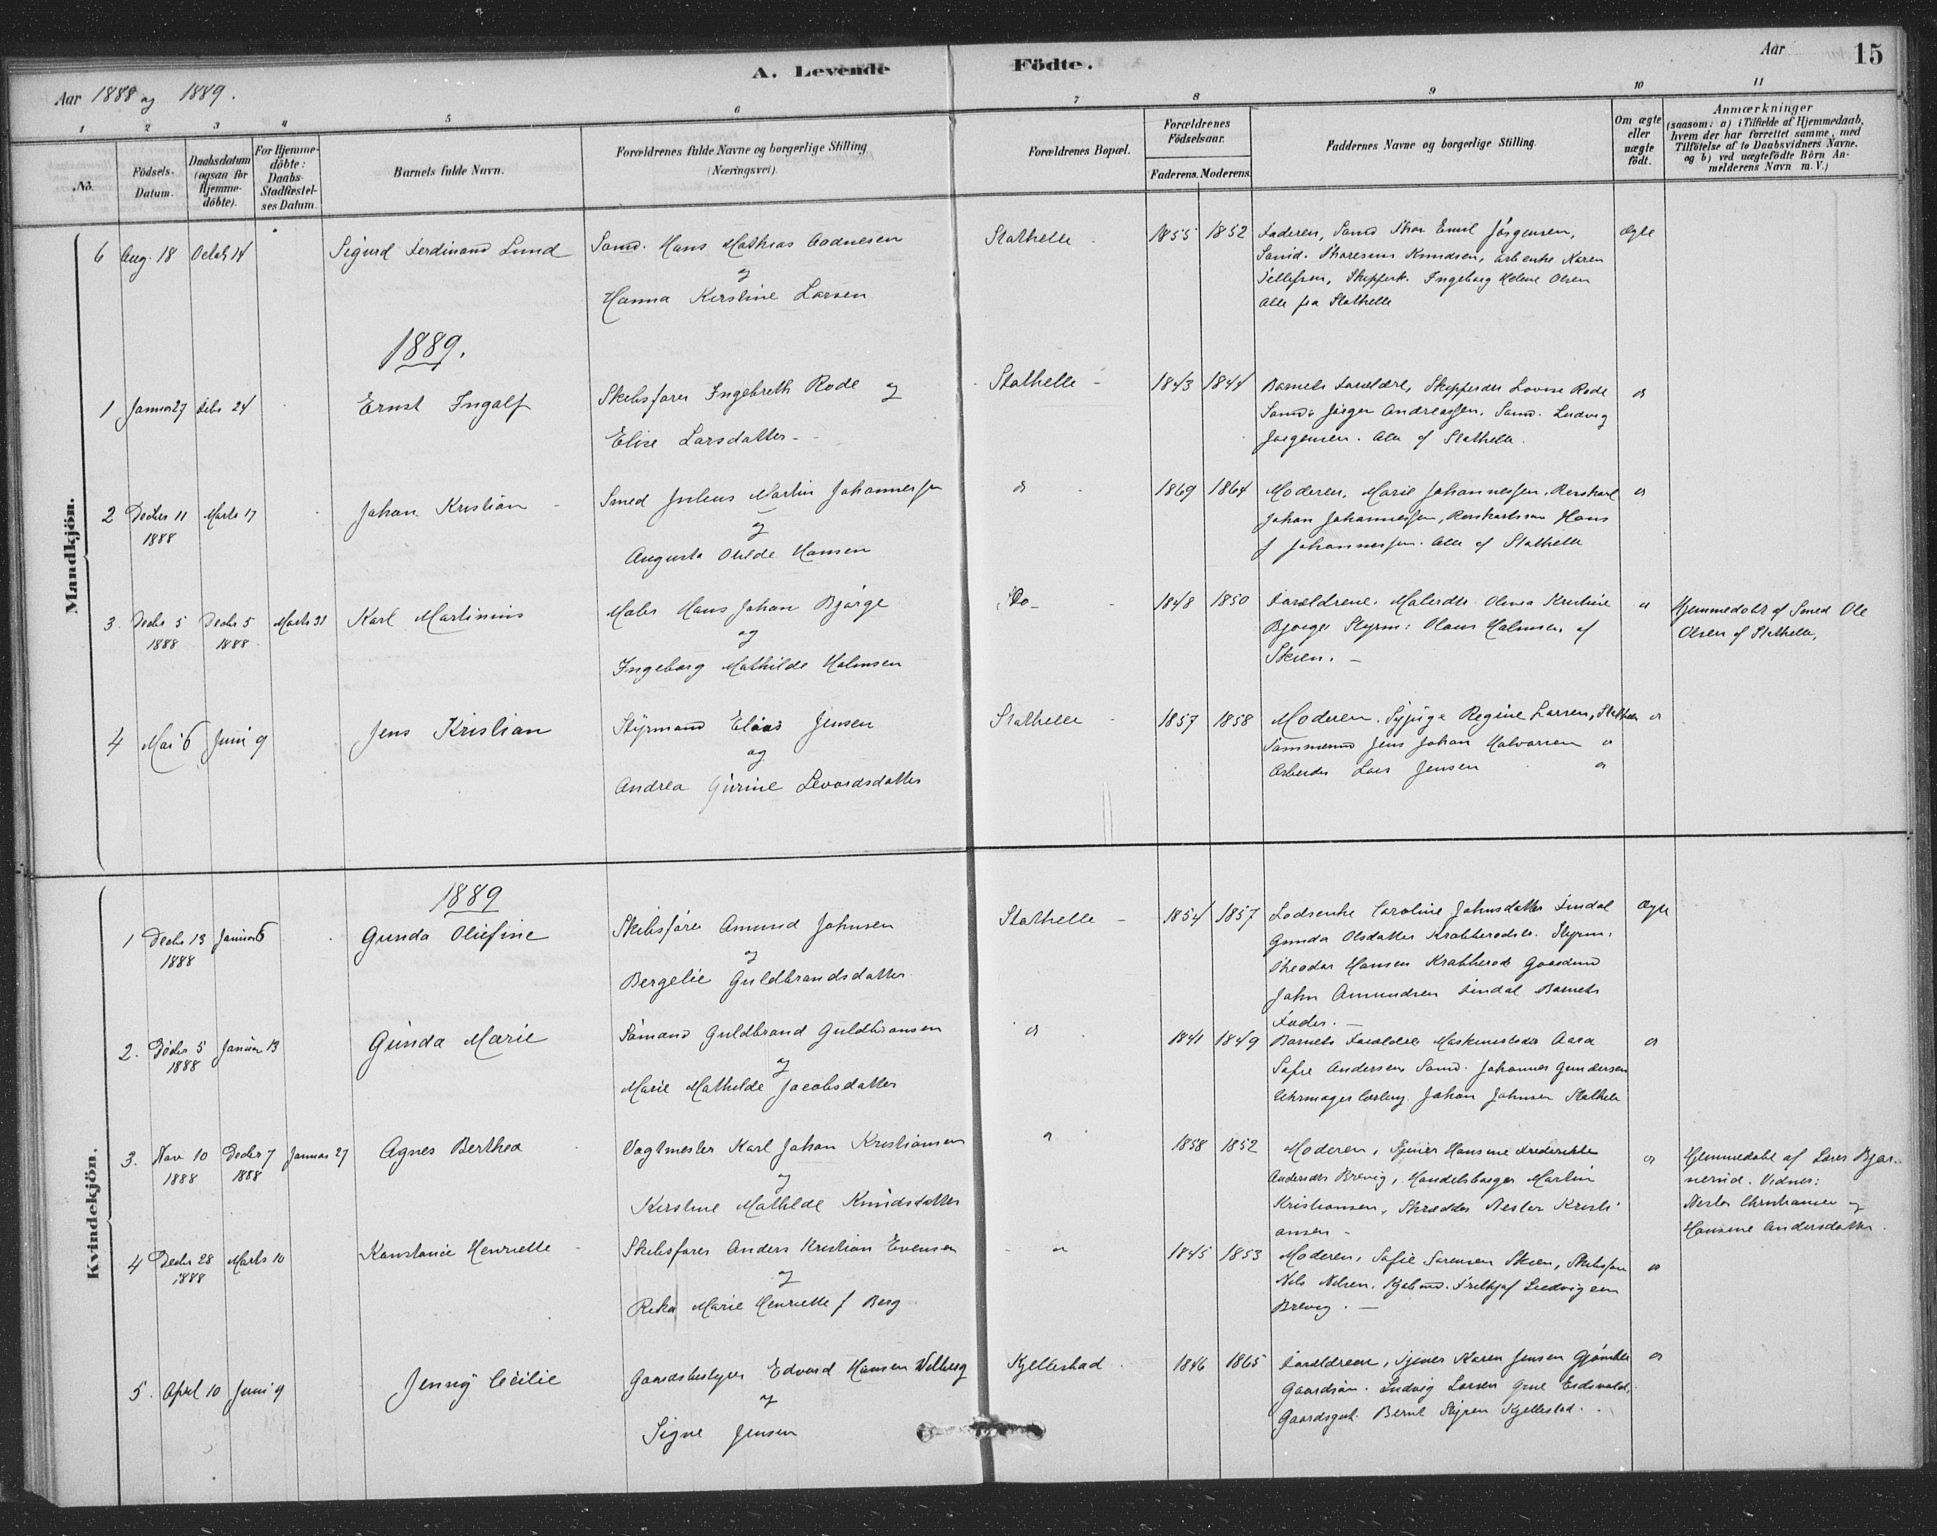 A. Levende Födte.
Aar 15
Aar 1888 og 1889.
1 2 3 4 5 6 7 8 9 10 11
No.
Födsels-Datum.
Daabsdatum (ogsaa for Hjemme-döbte).
For Hjemme-döbte: Daabs-Stadfæstel-ses Datum.
Barnets fulde Navn.
Forældrenes fulde Navne og borgerlige Stilling (Næringsvei).
Forældrenes Bopæl.
Forældrenes Födselsaar.
Faderens. Moderens.
Faddernes Navne og borgerlige Stilling.
Om ægte eller uægte födt.
Anmærkninger
(saasom: a) i Tilfælde af Hjemmedaab, hvem der har forrettet samme, med Tilföielse af to Daabsvidners Navne. og b) ved uægtefödte Börn An-melderens Navn m. V.)
Mandkjön.
6 Aug. 18 Octob 14 Sigurd Ferdinand Lund
Sømd. Hans Mathias Aadnesen
og
Hanna Kirstine Larsen
Stathelle 1855 1852
Faderen, Sømd Thor Emil Jørgensen,
Sømd. Knudsen, Karen
Tellefsen, Ingeborg Helene Olsen
Alle fra Stathelle
Ægte
1889.
1 Januar 27 Febr 24 Ernst Ingolf
Skibsfører Ingebreth Rode og
Elise Larsdatter
Stathelle 1843 1844
Barnets Forældre, Lovise Rode
Sømd Jørgen Andreassen, Sømd. Ludvig
Jørgensen. Alle af Stathelle.
2 Decbr 11 1888 Marts 17 Johan Kristian
Smed Julius Martin Johannessen
og
Augusta Hansen
1869 1864
Moderen, Marie Johannessen,
Johan Johannessen, Hans
Johannessen. Alle af Stathelle
3 Decbr 5 1888 Decbr 5 1888 Marts 31 Karl Martinius
Maler Hans Johan Bjørge
og
Ingeborg Mathilde Holmsen
Do 1848 1850
Forældrene. Olava Kristine
Bjørge Styrm: Olaus Holmsen af
Skien.
Hjemmedøbt af Smed Ole
Olsen af Stathelle.
4 Mai 6 Juni 9 Jens Kristian
Styrmand Elias Jensen
og
Andrea Gurine Levordsdatter
Stathelle 1857 1858
Moderen. Sypige Regine Larsen, Stathelle
Tømmermd Jens Johan Halvorsen
Arbeider Lars Jensen
Kvindekjön.
1889
1 Decbr 13 1888 Januar 6 Gunda Oliefine
Skibsfører Amund Johnsen
og
Bergelie Guldbrandsdatter
Stathelle 1854 1857
Lodsenke Caroline Johnsdatter Findal
Gunda Olsdatter Styrm.
Theodor Hansen Krabberød Gaardmd
John Amundsen Findal Barnets
Fader.
Ægte
2. Decbr 5 1888 Januar 13 Gunda Marie
Sømand Guldbrand Guldbransen
og
Marie Mathilde Jacobsdatter
1841 1849
Barnets Forældre Aasa
Sofie Andersen Sømd. Johannes Gundersen
Uhrmager Johan Johnsen Stathelle
3. Nov 10 1888 Decbr 7 1888 Januar 27 Agnes Berthea
Vagtmester Karl Johan Kristiansen
og
Kirstine Mathilde Knudsdatter
1858 1852
Moderen, Tjener Hansine Frederikke
Andersdtr Brevig, Handelsborger Martin
Kristiansen, Skrædder Kristi-
ansen
Hjemmedøbt af Lærer Bjør-
nerud. Vidner:

Hansine Andersdatter.
4 Decbr 28 1888 Marts 10 Konstanse Henriette
Skibsfører Anders Kristian Evensen
og
Rika Marie Henriette f Berg
1845 1853
Moderen, Sofie Sørensen Skien, Skibsfører
Nils Nilsen, Fridtjof Ludvigsen
Brevig.
5. April 10 Juni 9 Jenny Cecilie
Gaardsbestyrer Edvard Hansen Wilberg
og
Signe Jensen
Kjellestad 1846 1865
Forældrene, Tjener Karen Jensen
Ludvig Larsen Eidsvold,
Gaardsgut. Bernt Styren Kjellestad.